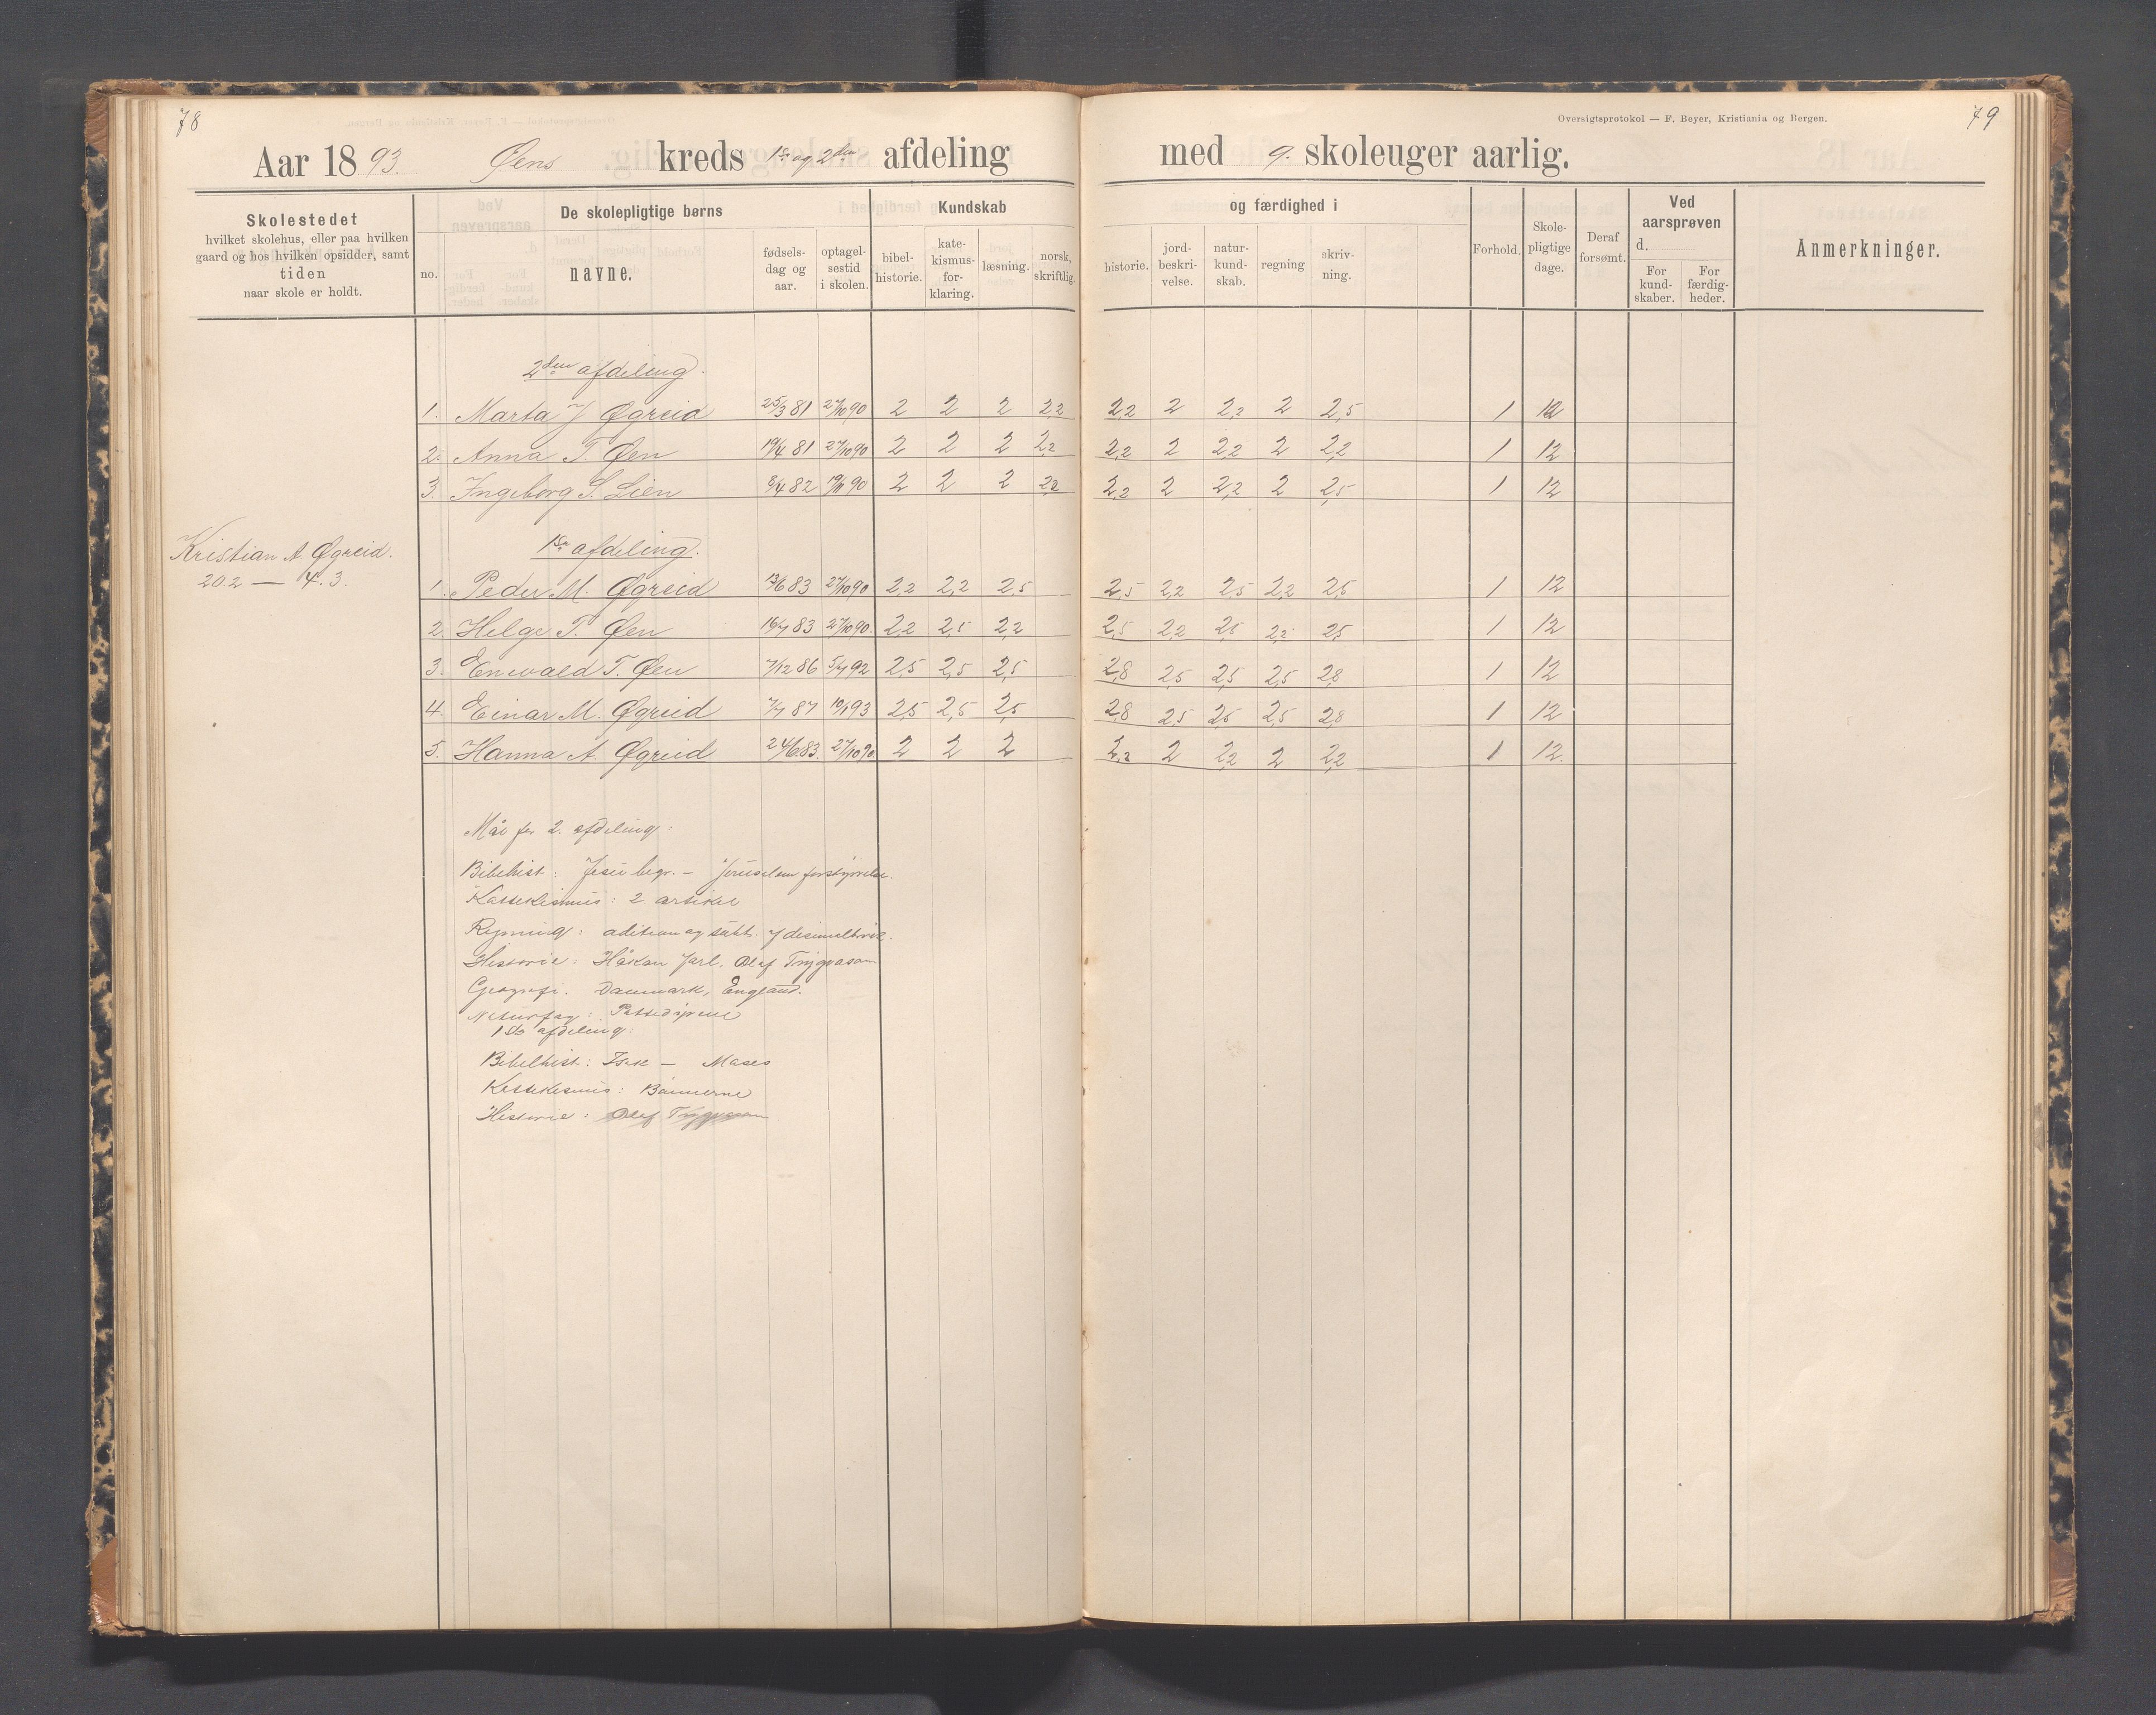 78
Aar 1893. Øens kreds 1ste og 2den afdeling
Skolestedet
hvilket skolehus, eller paa hvilken
gaard og hos hvilken opsidder, samt
tiden
naar skole er holdt.
De skolepligtige børns
no.
navne.
fødsels-
dag og
aar.
optagel-
sestid
i skolen.
Kundskab
bibel-
historie.
kate-
kismus-
for-
klaring.
læsning.
norsk,
skriftlig.
2den afdeling.
1. Marta J Øgreid 25/3 81 27/10 90 2 2 2 2,2
2. Anna T. Øen 19/4 81 27/10 90 2 2 2 2,2
3. Ingeborg S. Lien 8/4 82 90 2 2 2 2,2
Kristian A. Øgreid.
20.2 — 4.3.
1ste afdeling.
1. Peder M. Øgreid 13/6 83 27/10 90 2,2 2,2 2,5
2. Helge T. Øen 16/7 83 27/10 90. 2,2 2,5 2,2
3. Enevald T. Øen 7/12 86 5/7 92 2,5 2,5 2,5
4. Einar M. Øgreid 7/7 87 10/1 93 2,5 2,5 2,5
5. Hanna A. Øgreid 24/6 83. 27/10 90 2 2 2
Mål for 2. afdeling:
Bibelhist: Jesu begr. — Jerusalem forstyrrelse.
Kattekismus: 2 artikel
Regning: adition og subt. i desimalbrøk.
Historie: Håkon Jarl. Olaf Trygvason
Geografi. Danmark, England.
Naturfag: Pattedyrene
1ste afdeling:
Bibelhist: Isak — Moses
Kattekismus: Bønnerne
Historie: Olaf Trygvason
79
Oversigtsprotokol — F. Beyer, Kristiania og Bergen.
med 9. skoleuger aarlig.
og færdighed i
historie.
jord-
beskri-
velse.
natur-
kund-
skab.
regning
skriv-
ning.
Forhold.
Skole-
pligtige
dage.
Deraf
forsømt.
Ved
aarsprøven
d.
For
kund-
skaber.
For
færdig-
heder.
Anmerkninger.
2,2 2 2,2 2 2,5 1 12
2,2 2 2,2 2 2,2 1 12
2,2 2 2,2 2 2,5 1 12
2,5 2,2 2,5 2,2 2,5 1 12
2,5 2,2 2,5 2,2 2,5 1 12
2,8 2,5 2,5 2,5 2,8 1 12
2,8 2,5 2,5 2,5 2,8 1 12
2,2 2 2,2 2 2,2 1 12.